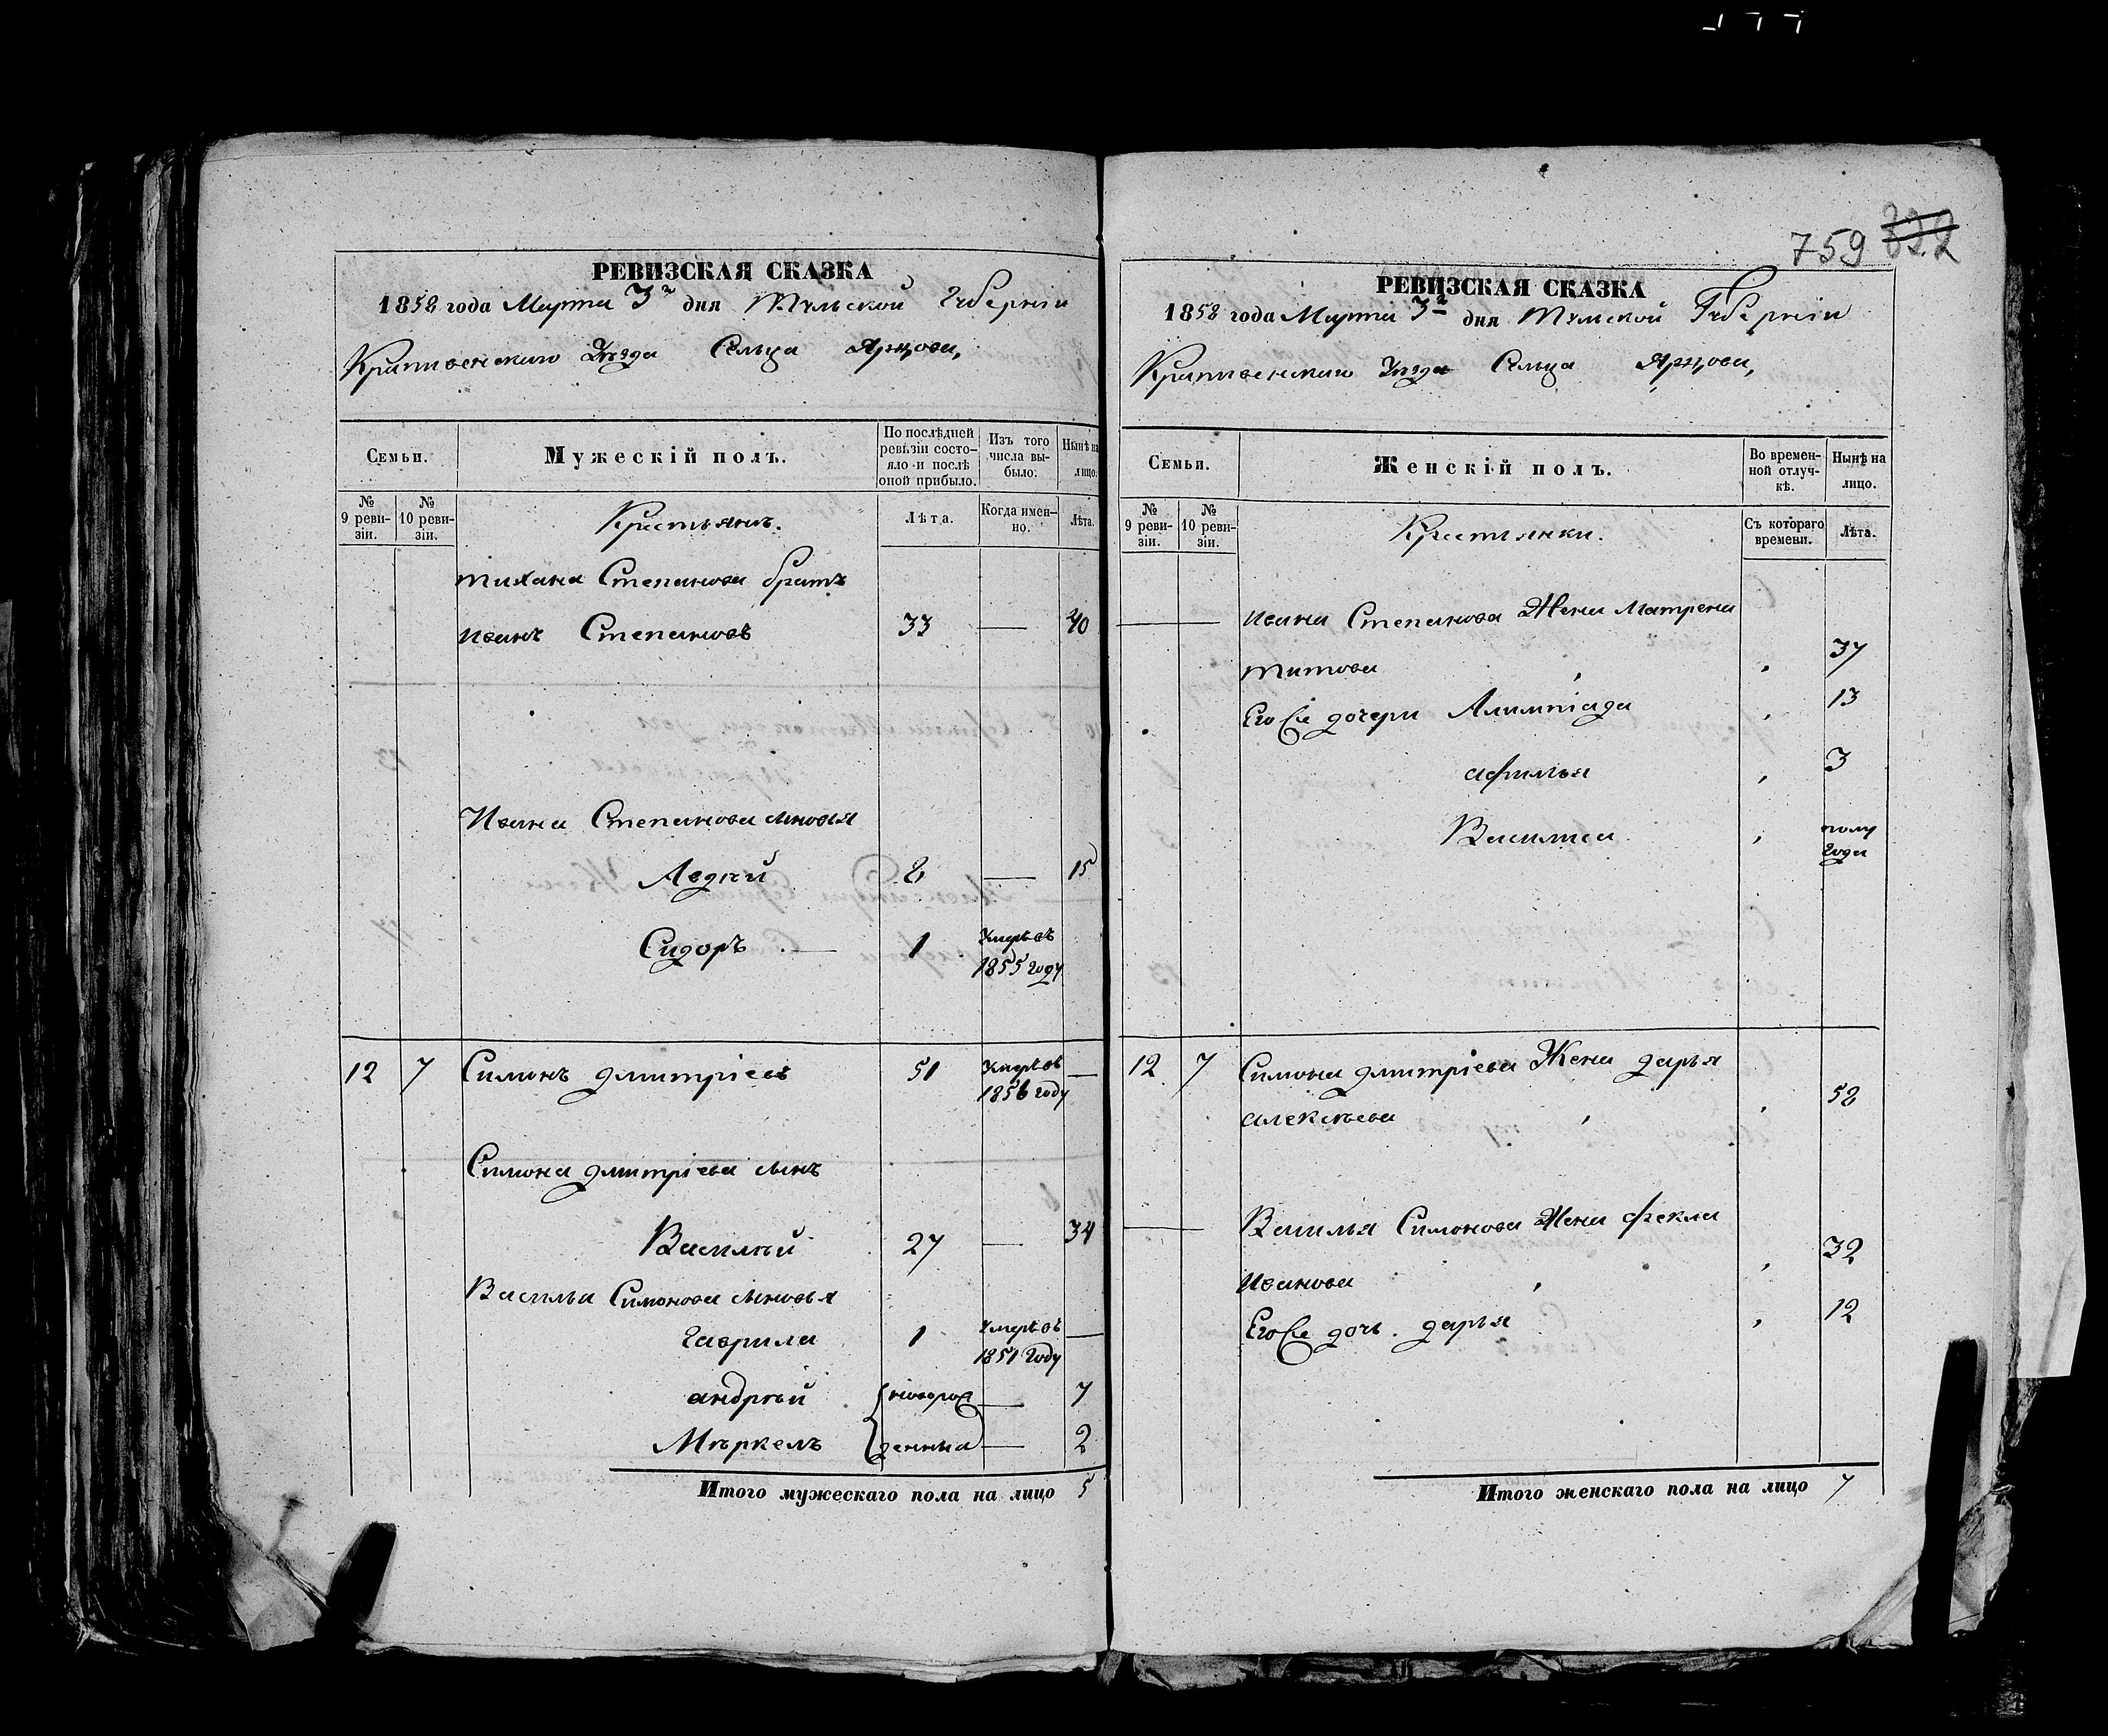 РЕВИЗСКАЯ СКАЗКА
1858 года Марта 3го дня Тульской Губерніи
Крапивенскаго Уѣзда Сельца Ярцова,
Семьи.
Мужескій полъ.
По послѣдней ревизіи состояло и послѣ оной прибыло.
Изъ того числа выбыло.
Нынѣ на лицо.
№ 9 ревизіи.
№ 10 ревизіи.
Крестьянъ.
Лѣта.
Когда именно.
Лѣта.
тихана Степанова братъ
иванъ Степановъ 33 — 40
Ивана Степанова сыновья
Авдѣй 8 — 15
Сидоръ — 1 Умеръ въ
1855 году
12 7 Симонъ дмитріевъ 51 Умеръ въ —
1856 году
Симона дмитріева сынъ
Василѣй 27 — 34
Василья Симонова сыновья
Гаврила 1 Умеръ въ —
1851 Году
андрѣй новорож — 7
Мѣркелъ денныа — 2
Итого мужескаго пола на лицо 5
759 822
РЕВИЗСКАЯ СКАЗКА
1858 года Марта 3го дня Тульской Губерніи
Крапивенскаго Уѣзда Сельца Ярцова,
Семьи.
Женскій полъ.
Во временной отлучкѣ.
Нынѣ на лицо.
№ 9 ревизіи.
№ 10 ревизіи.
Крестьянки.
Съ котораго времени.
Лѣта.
ивана Степанова Жена Матрена
титова 37
Его Ѓе дочери Алимпіада 13
афимья 3
Василиса полу
года
12 7 Симона дмитріева Жена дарья
алексѣева 58
Василья Симонова Жена фекла
иванова 32
Его Ѓе дочь. дарья 12
Итого женскаго пола на лицо 7